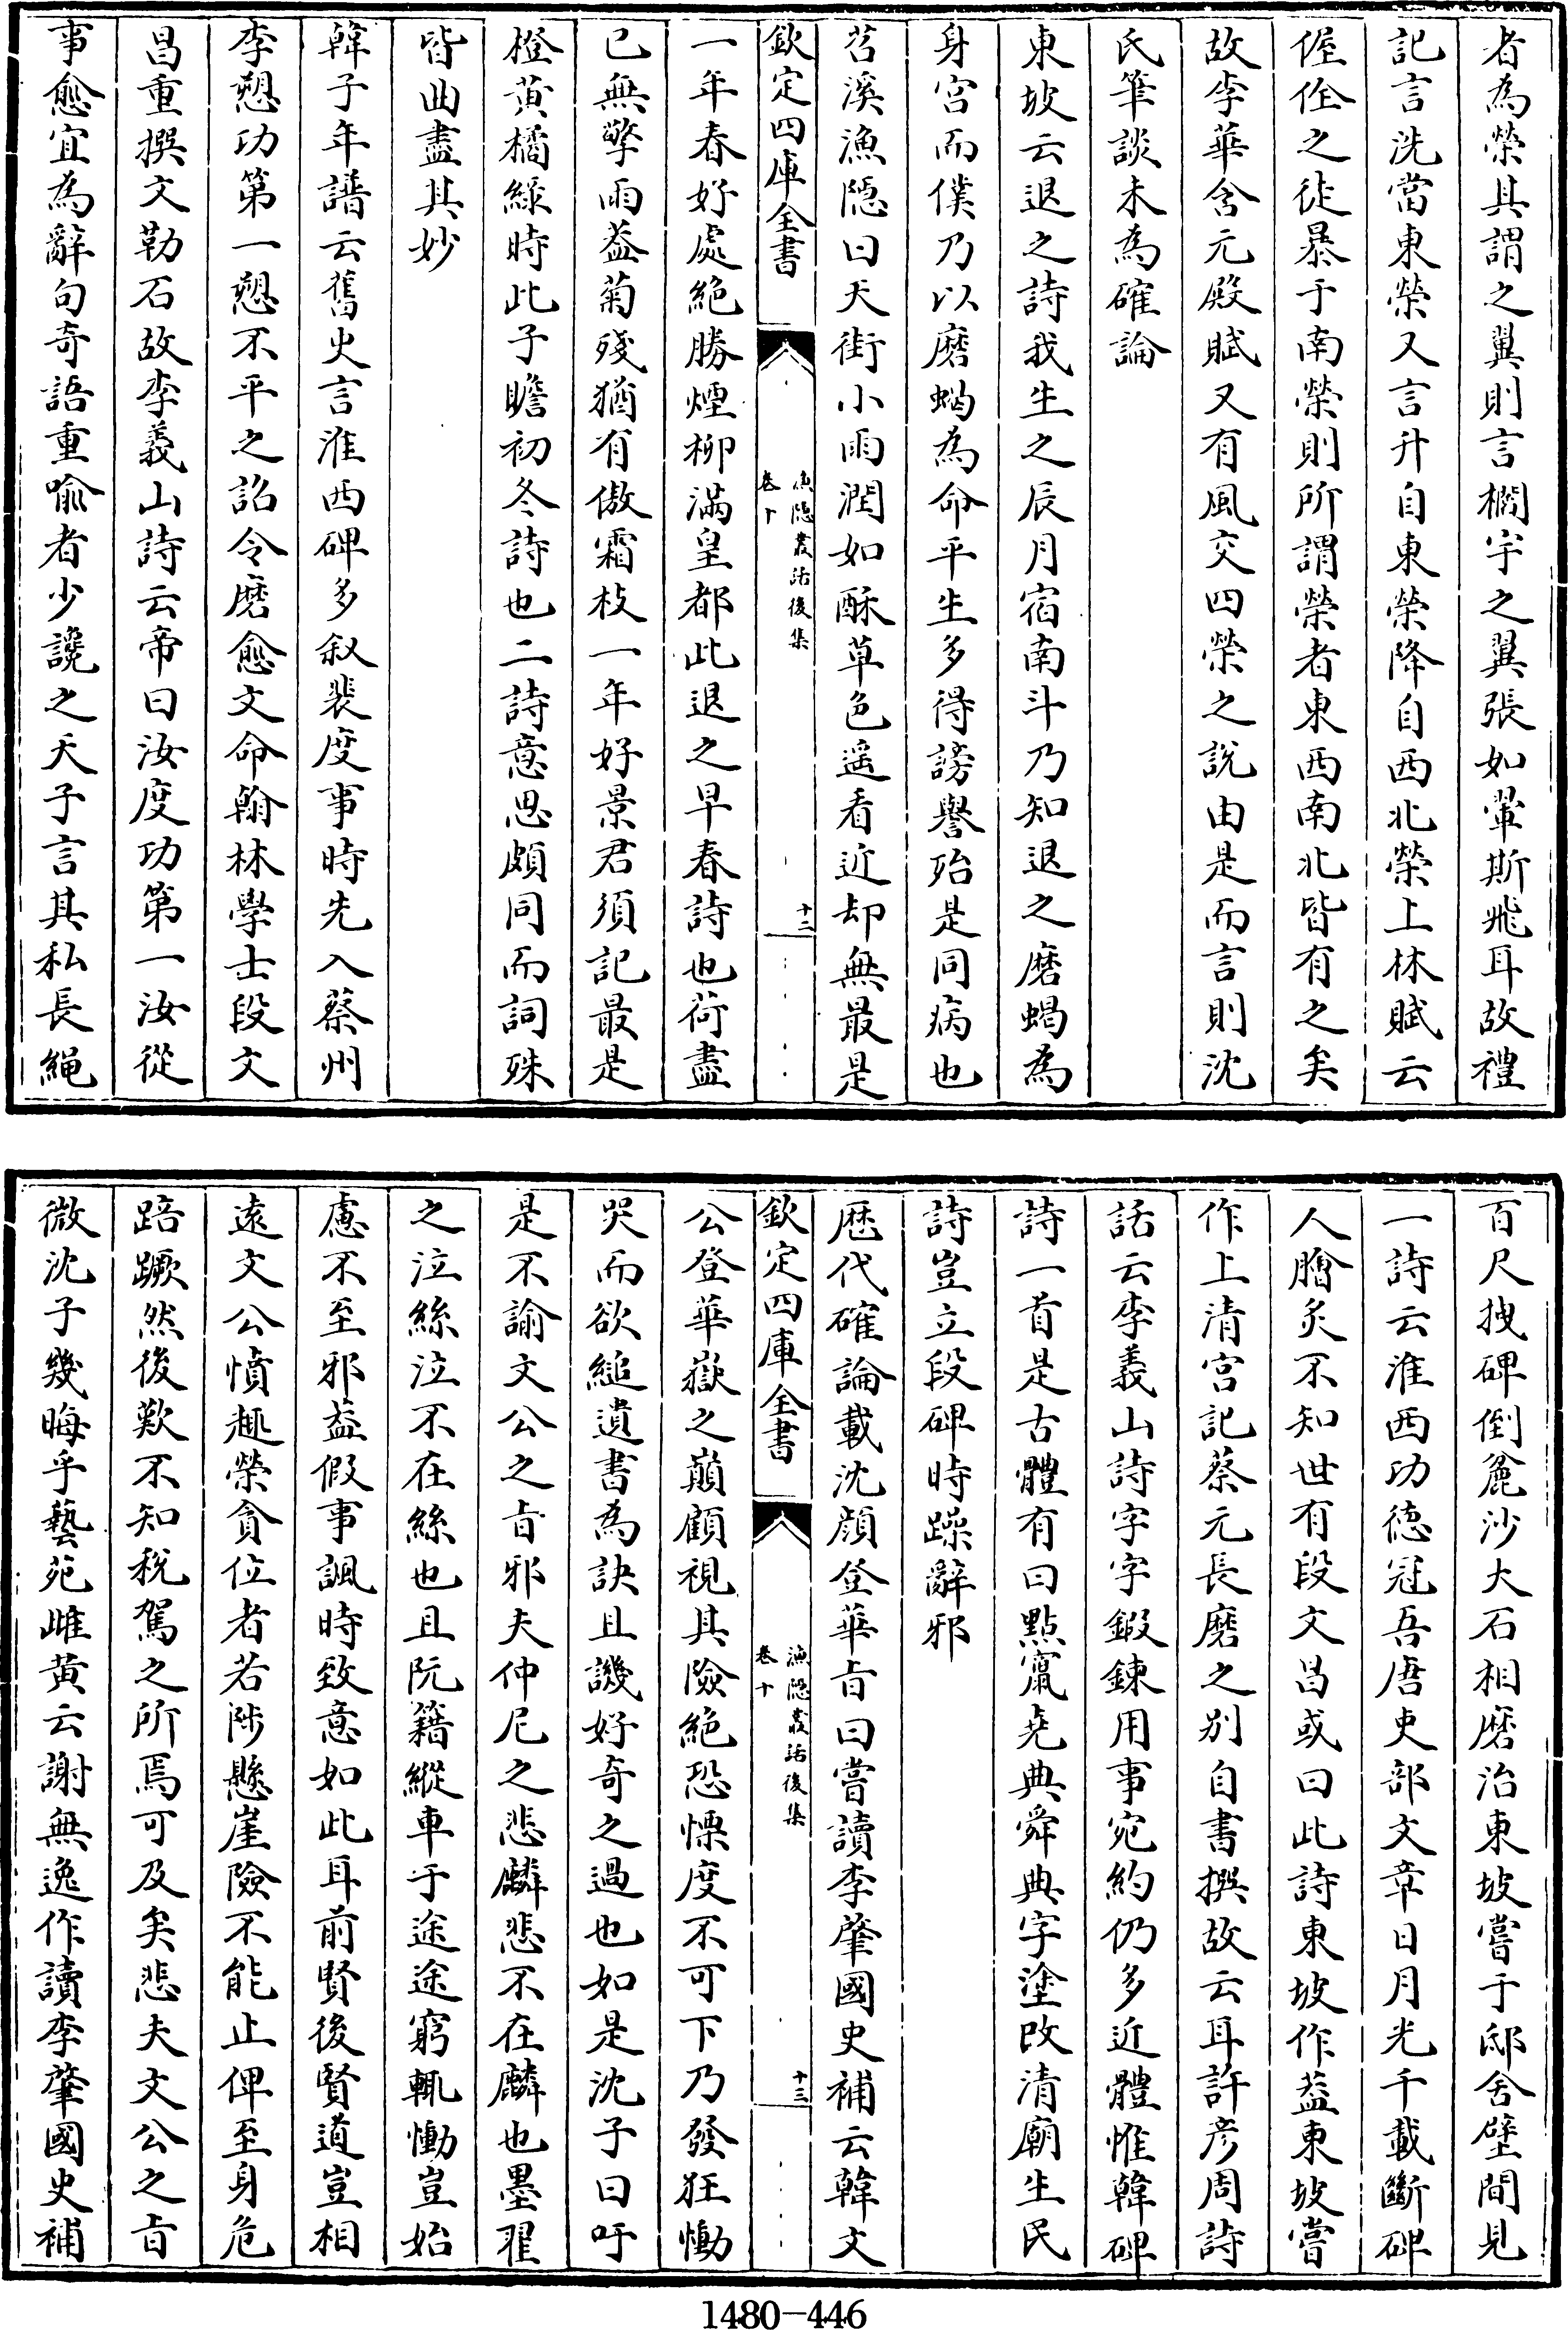 者為榮其謂之翼則言櫩宇之翼張如翬斯飛耳故禮
記言洗當東榮又言升自東榮降自西北榮上林賦云
偓佺之徒暴于南榮則所謂榮者東西南北皆有之矣
故李華含元殿賦又有風交四榮之說由是而言則沈
氏筆談未為確論
東坡云退之詩我生之辰月宿南斗乃知退之磨蝎為
身宮而僕乃以磨蝎為命平生多得謗譽殆是同病也
苕溪漁隱曰天街小雨潤如酥草色遥看近却無最是
欽定四庫全書
漁隱叢話後集
卷十
十二
一年春好處絶勝煙柳滿皇都此退之早春詩也荷盡
已無擎雨葢菊殘猶有傲霜枝一年好景君須記最是
橙黄橘綠時此子瞻初冬詩也二詩意思頗同而詞殊
皆曲盡其妙
韓子年譜云舊史言淮西碑多叙裴度事時先入蔡州
李愬功第一愬不平之詔令磨愈文命翰林學士段文
昌重撰文勒石故李義山詩云帝曰汝度功第一汝從
事愈宜為辭句奇語重喻者少讒之天子言其私長繩
百尺拽碑倒麄沙大石相磨治東坡嘗于邸舍壁間見
一詩云淮西功徳冠吾唐吏部文章日月光千載斷碑
人膾炙不知世有段文昌或曰此詩東坡作葢東坡嘗
作上清宮記蔡元長磨之别自書撰故云耳許彦周詩
話云李義山詩字字鍛鍊用事宛約仍多近體惟韓碑
詩一首是古體有曰點竄堯典舜典字塗改清廟生民
詩豈立段碑時躁辭邪
歴代確論載沈顔登華旨曰嘗讀李肇國史補云韓文
欽定四庫全書
漁隱叢話後集
卷十
十三
公登華嶽之巔顧視其險絶恐慄度不可下乃發狂慟
哭而欲縋遺書為訣且譏好奇之過也如是沈子曰吁
是不諭文公之旨邪夫仲尼之悲麟悲不在麟也墨翟
之泣絲泣不在絲也且阮籍縱車于途途窮輒慟豈始
慮不至邪葢假事諷時致意如此耳前賢後賢道豈相
逺文公憤趣榮貪位者若陟懸崖險不能止俾至身危
踣蹶然後歎不知稅駕之所焉可及矣悲夫文公之旨
微沈子幾晦乎藝苑雌黄云謝無逸作讀李肇國史補
1480-446